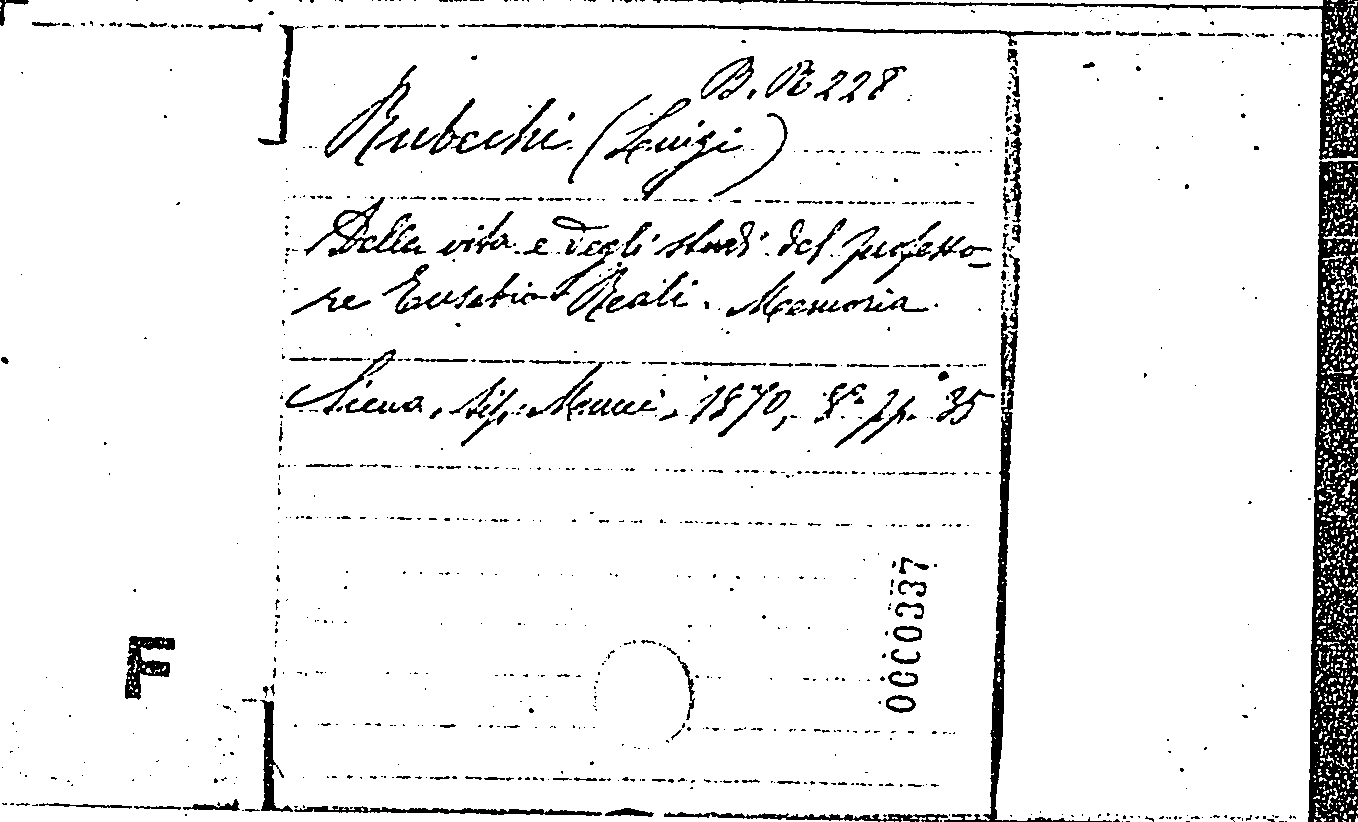 B. R. 228
Rubechi (Luigi)
Della vita e degli studi del professo-
re Eusebio Reali. Memoria
Siena, tip. Mucci, 1870, 8º pp. 35
0000337
F